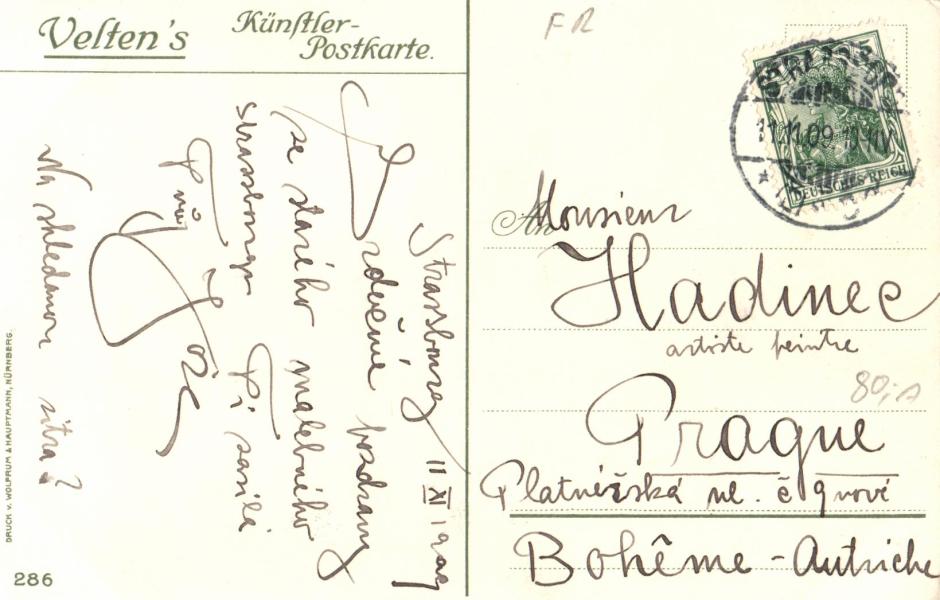 Velten's
Künstler-
Postkarte.
Strassbourg 11 XI 1909
Srdečné pozdravy
ze starého malebného
Strassbourgu Ti zasílá
Tvůj
Na shledanou zítra?
DRUCK v. WOLFRUM & HAUPTMANN, NÜRNBERG.
286
FR
11.11.09
DEUTSCHES REICH
An
Monsieur
Hadinec
artiste peintre
80,-
Prague
Platnéřská ul. č 9 nové
Bohême - Autriche